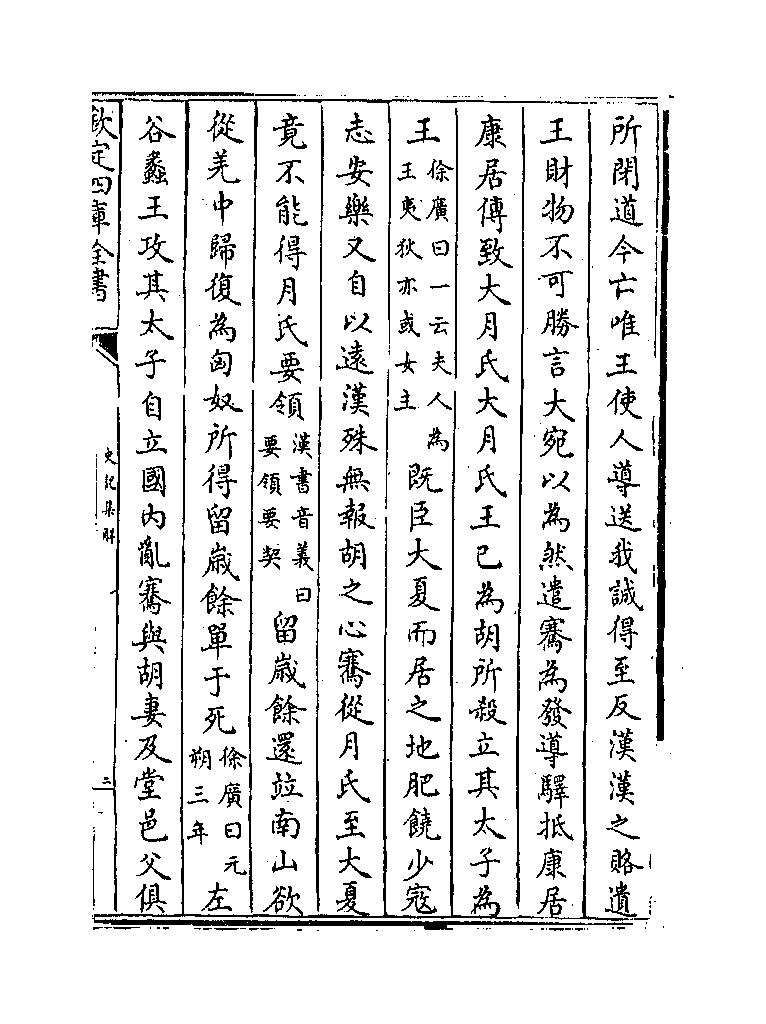 所閉道今亡唯王使人導送我誠得至反漢漢之賂遺
王財物不可勝言大宛以為然遣騫為發導驛抵康居
康居傳致大月氏大月氏王已為胡所殺立其太子為
王徐廣曰一云夫人為王夷狄亦或女主既臣大夏而居之地肥饒少寇
志安樂又自以遠漢殊無報胡之心騫從月氏至大夏
竟不能得月氏要領漢書音義曰要領要契留嵗餘還竝南山欲
從羌中歸復為匈奴所得留嵗餘單于死徐廣曰元朔三年左
谷蠡王攻其太子自立國內亂騫與胡妻及堂邑父俱
欽定四庫全書
史記集解
二